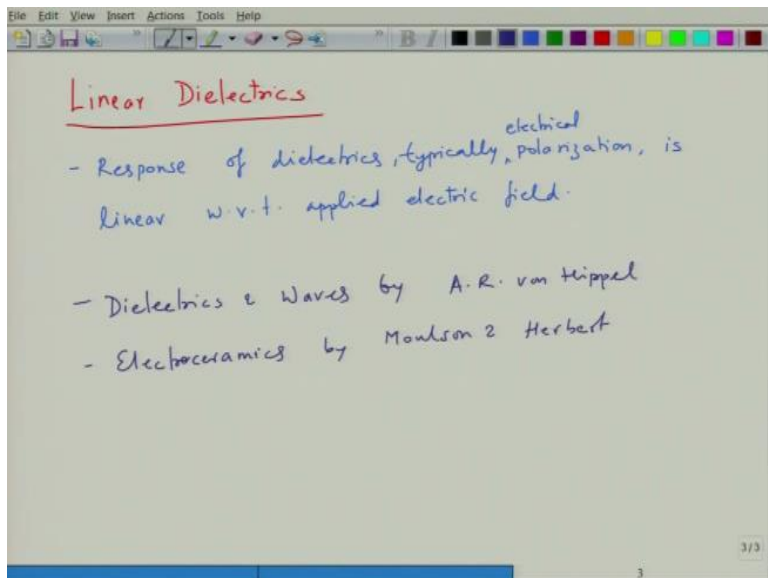 File Edit View Insert Actions Tools Help
B I
Linear Dielectrics
electrical
- Response of dielectrics, typically, polarization, is
linear w.r.t. applied electric field.
- Dielectrics & Waves by A.R. von Hippel
- Electroceramics by Moulson & Herbert
3/3
3